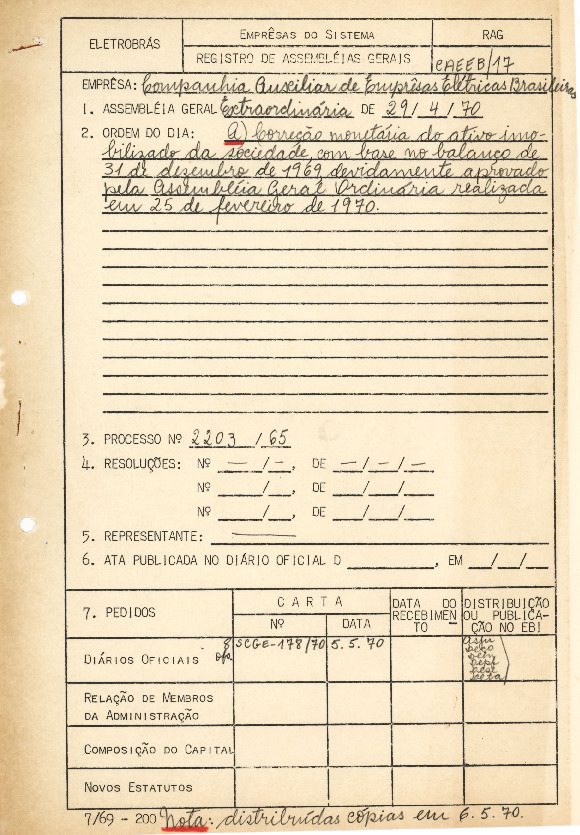 ELETROBRÁS
EMPRÊSAS DO SISTEMA
REGISTRO DE ASSEMBLÉIAS GERAIS
RAG
CAEEB/17
EMPRÊSA: Companhia Auxiliar de Emprêsas Elétricas Brasileiras
1. ASSEMBLÉIA GERAL Extraordinária DE 29/4/70
2. ORDEM DO DIA: a) Correção monetária do ativo imo-
bilizado da sociedade, com base no balanço de
31 de dezembro de 1969, devidamente aprovado
pela Assembléia Geral Ordinária realizada
em 25 de fevereiro de 1970.
3. PROCESSO Nº 2203 /65
4. RESOLUÇÕES: Nº — / — , DE — / — / —
Nº / , DE / /
Nº / , DE / /
5. REPRESENTANTE: —
6. ATA PUBLICADA NO DIÁRIO OFICIAL D , EM / /
7. PEDIDOS
CARTA
Nº
DATA
DATA DO
RECEBIMEN
TO
DISTRIBUIÇÃO
OU PUBLICA-
ÇÃO NO EBI
DIÁRIOS OFICIAIS
SCGE-178/70
5.5.70
RELAÇÃO DE MEMBROS
DA ADMINISTRAÇÃO
COMPOSIÇÃO DO CAPITAL
NOVOS ESTATUTOS
7/69 - 200 Nota: distribuídas cópias em 6.5.70.